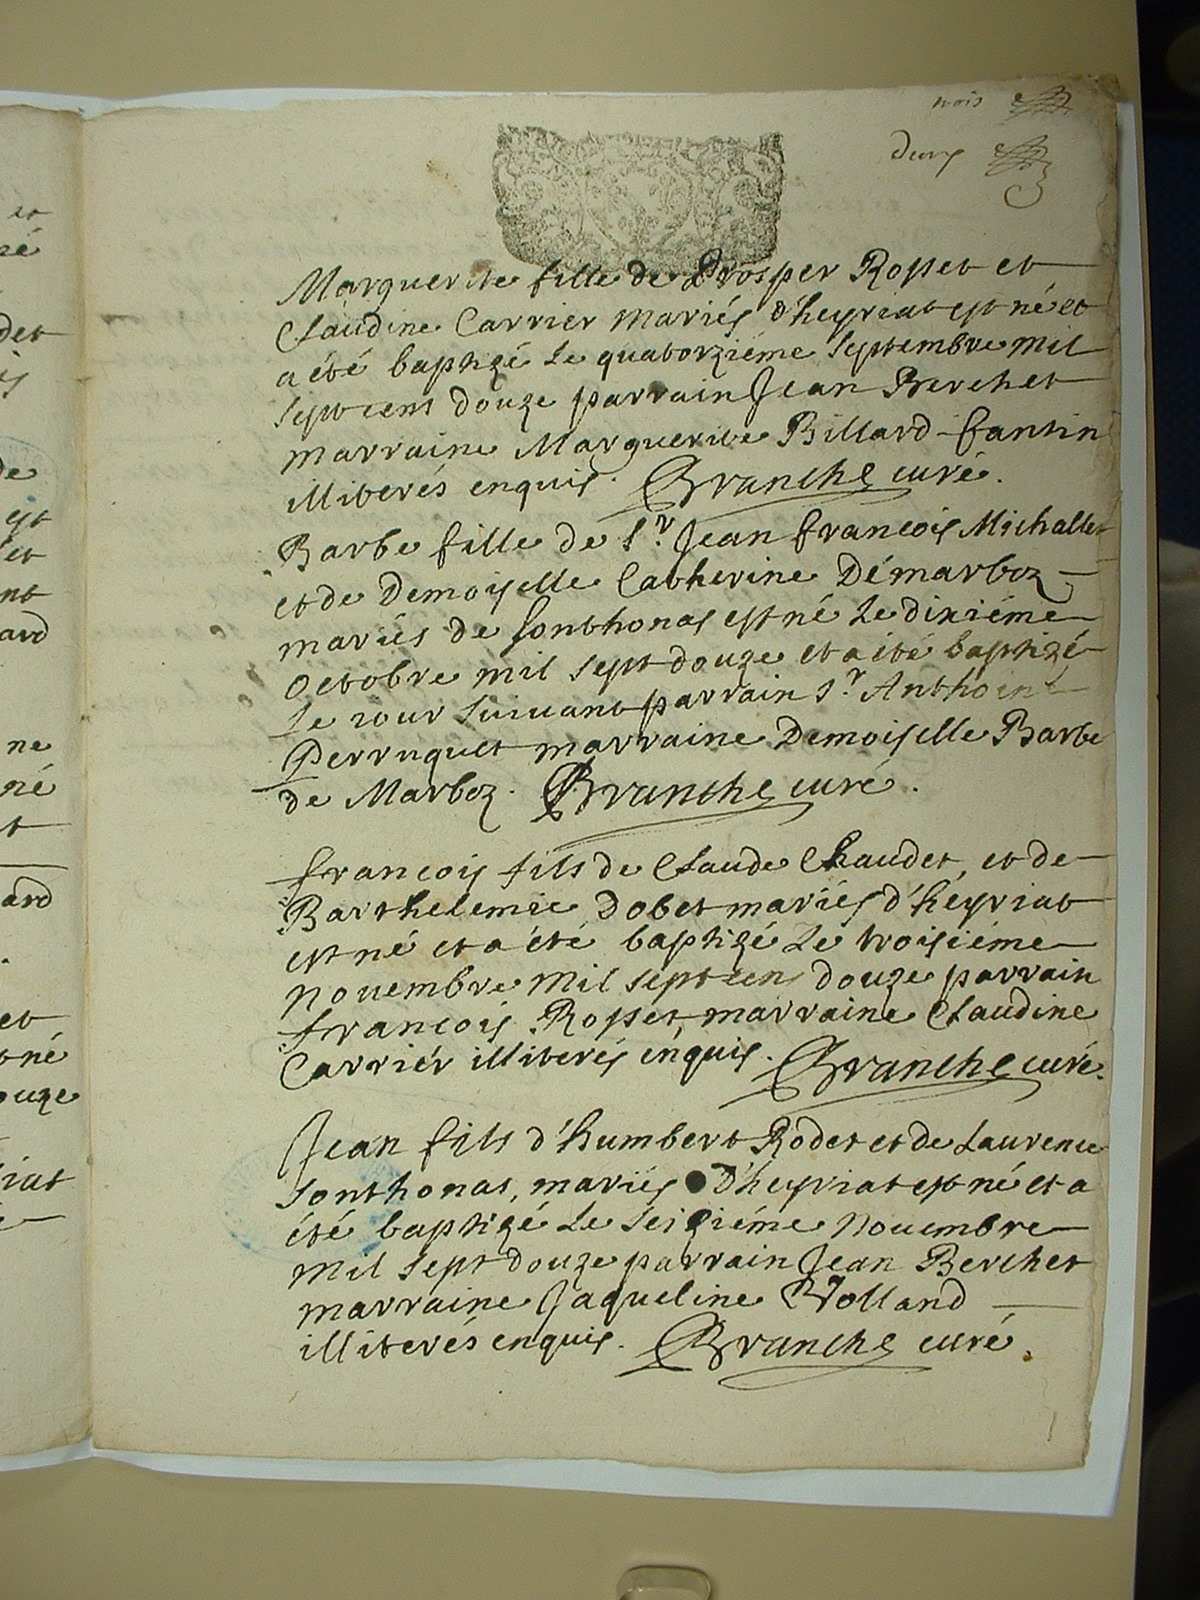 trois
deux
Marguerite fille de Prosper Rosset et
Claudine Carrier mariés d'heyriat est né et
a été baptizé le quatorziéme septembre mil
sept cens douze parrain Jean Berchet
marraine Marguerite Billard Cantin
illiterés enquis. Branche curé.
Barbe fille de Sr. Jean francois Michallet
et de Demoiselle Catherine Démarboz
mariés de Sonthonas est né le dixiéme
Octobre mil sept douze et a été baptizé
le iour suiuant parrain Sr. Anthoine
Perruquet marraine Demoiselle Barbe
de Marboz. Branche curé.
francois fils de Claude Chaudet et de
Barthelemie Dobet mariés d'heyriat
est né et a été baptizé le troisiéme
Nouembre mil sept cens douze parrain
francois Rosset, marraine Claudine
Carriér illiterés énquis. Branche curé.
Jean fils d'humbert Rodet et de Laurence
Sonthonas, mariés d'heyriat est né et a
été baptizé le seiziéme Nouembre
mil sept douze parrain Jean Berchet
marraine Jaqueline Volland
illiterés enquis. Branche curé.